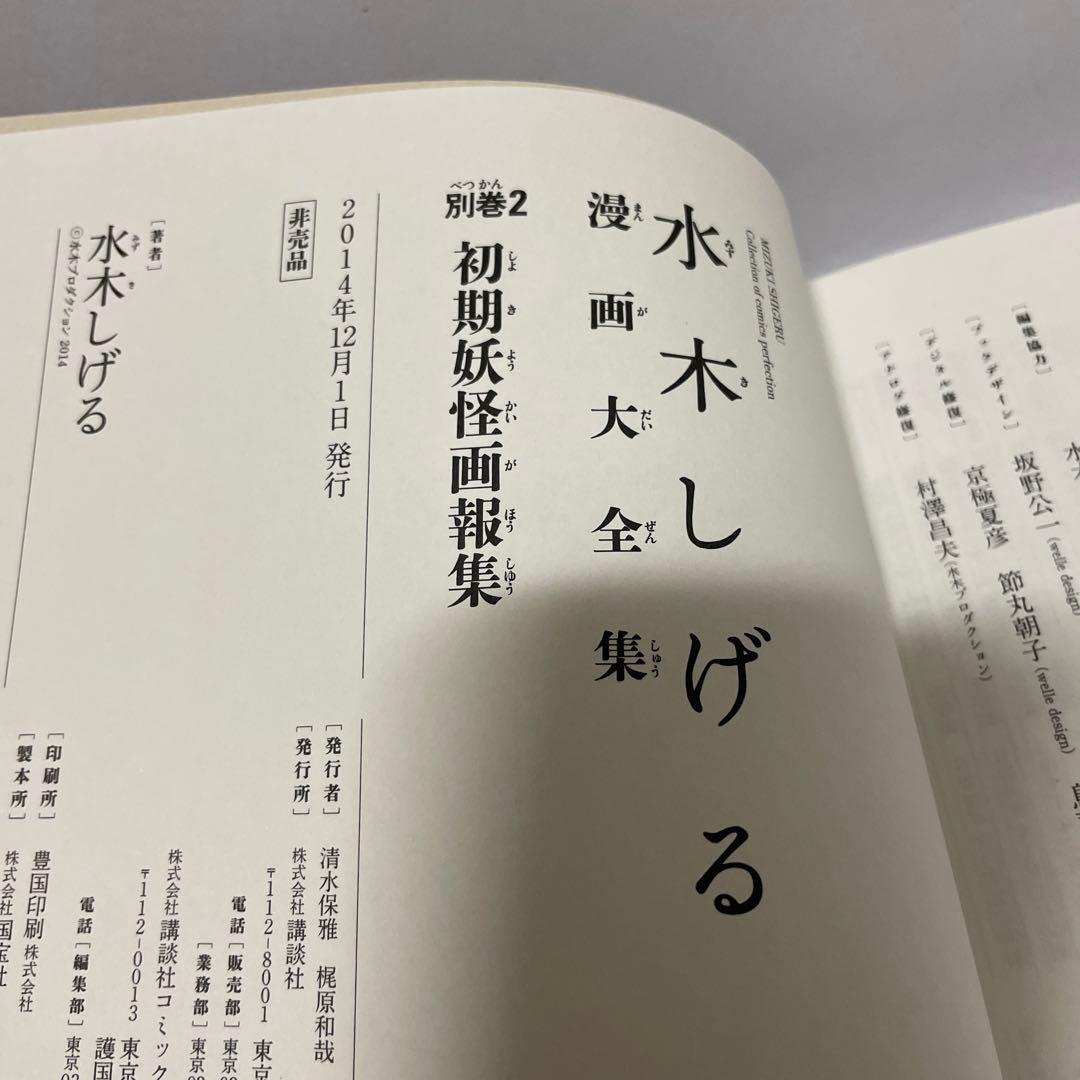 MIZUKI SHIGERU
Collection of comics perfection
水木しげる
みずき
漫画大全集
まんがだいぜんしゅう
別巻2
べつかん
初期妖怪画報集
しよきようかいがほうしゆう
2014年12月1日 発行
非売品
[著者]
水木しげる
みずき
©水木プロダクション 2014
[発行者] 清水保雅 梶原和哉
[発行所] 株式会社 講談社
〒112-8001 東京
電話[販売部] 東京
[業務部] 東京
株式会社 講談社コミック
〒112-0013 東京
護国
電話[編集部] 東京
[印刷所] 豊国印刷 株式会社
[製本所] 株式会社 国宝社
[編集協力]
[ブックデザイン] 坂野公一(welle design)
節丸朝子(welle design)
[デジタル修復] 京極夏彦
[アナログ修復] 村澤昌夫(水木プロダクション)